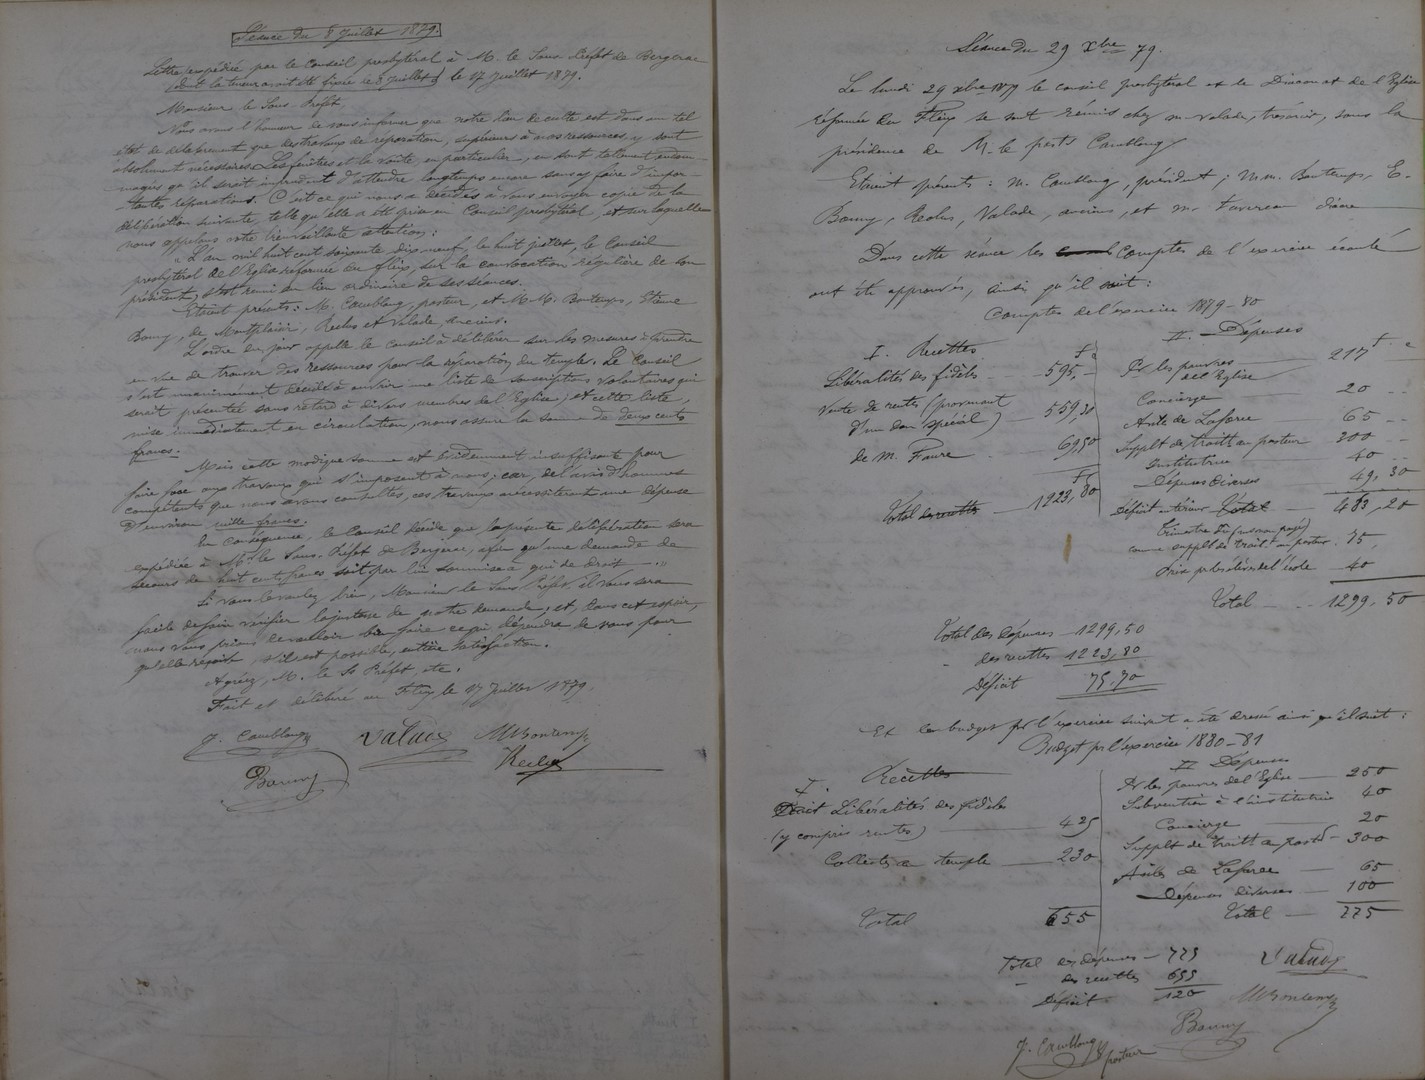 Séance du 8 Juillet 1879.
Lettre expédiée par le Conseil presbytéral à M. le Sous Préfet de Bergerac
(dont la teneur a été fixée le 8 Juillet) le 17 Juillet 1879.
Monsieur le Sous Préfet,
Nous avons l'honneur de vous informer que notre lieu de culte est dans un tel
état de délabrement que des travaux de réparation, supérieurs à nos ressources, y sont
absolument nécessaires. Les fenêtres et la voûte, en particulier, en sont tellement endom-
magées qu'il serait imprudent d'attendre longtemps encore sans y faire d'impor-
tantes réparations. C'est ce qui nous a décidés à vous envoyer copie de la
délibération suivante, telle qu'elle a été prise en Conseil presbytéral, et sur laquelle
nous appelons votre bienveillante attention :
"L'an mil huit cent soixante dix neuf, le huit juillet, le Conseil
presbytéral de l'Eglise réformée du Fleix, sur la convocation régulière de son
président, s'est réuni au lieu ordinaire de ses séances.
Etaient présents : M. Caublong, pasteur, et M.M. Bontemps, Etienne
Bouny, de Montplaisir, Reclus et Valade, anciens.
L'ordre du jour appelle le Conseil à délibérer sur les mesures à prendre
en vue de trouver des ressources pour la réparation du temple. Le Conseil
s'est unanimement décidé à ouvrir une liste de souscriptions volontaires qui
serait présentée sans retard à divers membres de l'Eglise ; et cette liste,
mise immédiatement en circulation, nous assure la somme de deux cents
francs.
Mais cette modique somme est évidemment insuffisante pour
faire face aux travaux qui s'imposent à nous ; car, de l'avis d'hommes
compétents que nous avons consultés, ces travaux nécessiteront une dépense
d'environ mille francs.
En conséquence, le Conseil décide que la présente délibération sera
expédiée à M. le Sous-Préfet de Bergerac, afin qu'une demande de
secours de huit cents francs soit par lui soumise à qui de droit."
Si vous le voulez bien, Monsieur le Sous Préfet, il vous sera
facile de faire vérifier la justesse de notre demande, et, dans cet espoir,
nous vous prions de vouloir bien faire ce qui dépendra de vous pour
qu'elle reçoive, s'il est possible, entière satisfaction.
Agréez, M. le S. Préfet, etc.
Fait et délibéré au Fleix le 17 Juillet 1879.
J. Caublong Valade Bontemps
Bouny Reclus
Séance du 29 Xbre 79.
Le lundi 29 xbre 1879 le conseil presbytéral et le Diaconat de l'Eglise
réformée du Fleix se sont réunis chez M. Valade, trésorier, sous la
présidence de M. le past. Caublong
Etaient présents : M. Caublong, président ; M.M. Bontemps, E.
Bouny, Reclus, Valade, anciens, et M. diacre
Dans cette séance les Comptes de l'exercice écoulé
ont été approuvés, ainsi qu'il suit :
Comptes de l'exercice 1879-80
I. Recettes
Libéralités des fidèles 595,-
Vente de rentes (provenant
d'un don spécial) 559,30
de M. Faure 69,50
Total des recettes 1223,80
II. Dépenses
Pr les pauvres
de l'Eglise 217
Concierge 20
Asile de Laforce 65
Supplt de traitt au pasteur 200
Institutrice 40
Dépenses diverses 49,30
Déficit antérieur Total 483,20
Trimestre (non payé)
comme supplt de trait. au pasteur 75,
Prix pr les élèves de l'école 40
Total 1299,50
Total des dépenses 1299,50
des recettes 1223,80
Déficit 75,70
Et le budget pr l'exercice suivant a été dressé ainsi qu'il suit :
Budget pr l'exercice 1880-81
I. Recettes
Libéralités des fidèles
(y compris rentes) 425
Collectes au temple 230
Total 655
II Dépenses
Pr les pauvres de l'Eglise 250
Subvention à l'institutrice 40
Concierge 20
Supplt de traitt au past. 300
Asiles de Laforce 65
Dépenses diverses 100
Total 775
Total des dépenses 775
des recettes 655
Déficit 120
Valade
Bontemps
Bouny
J. Caublong pasteur